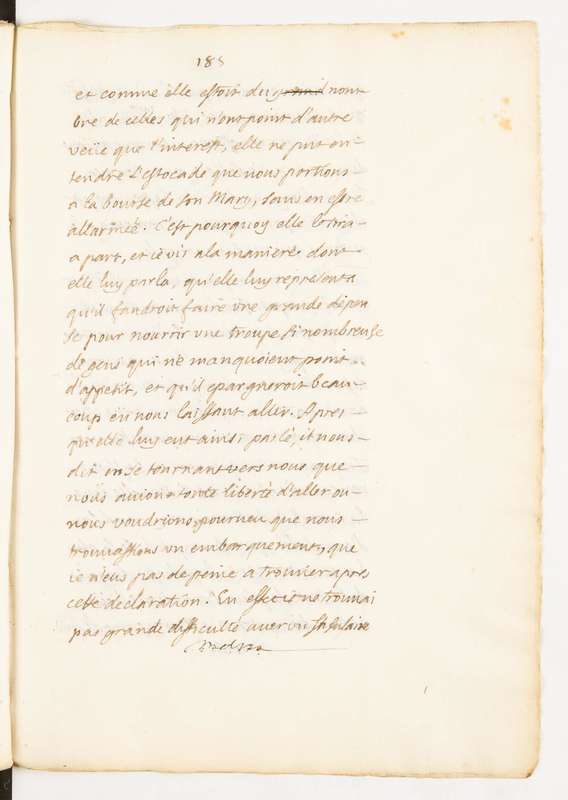 185
et comme elle estoit du grand nom-
bre de celles qui n'ont point d'autre
veüe que l'interest, elle ne put en-
tendre L'estocade que nous portions
a la bourse de son Mary, sans en estre
allarmée. C'est pourquoy elle le tira
a part, et ie vis a la maniere, dont
elle luy parla, qu'elle luy representa
qu'il faudroit faire vne grande dépen
se pour nourrir vne troupe si nombreuse
de gens qui ne manquoient point
d'appetit, et qu'il epargneroit beau-
coup en nous laissant aller. Apres
qu'elle luy eut ainsi parlé, il nous
dit en se tournant vers nous que
nous auions toute liberté d'aller ou
nous voudrions, pourueu que nous
trouuassions vn embarquement, que
ie n'eus pas de peine a trouuer apres
cette declaration. En effect ie ne trouuai
pas grande difficulté auec vn